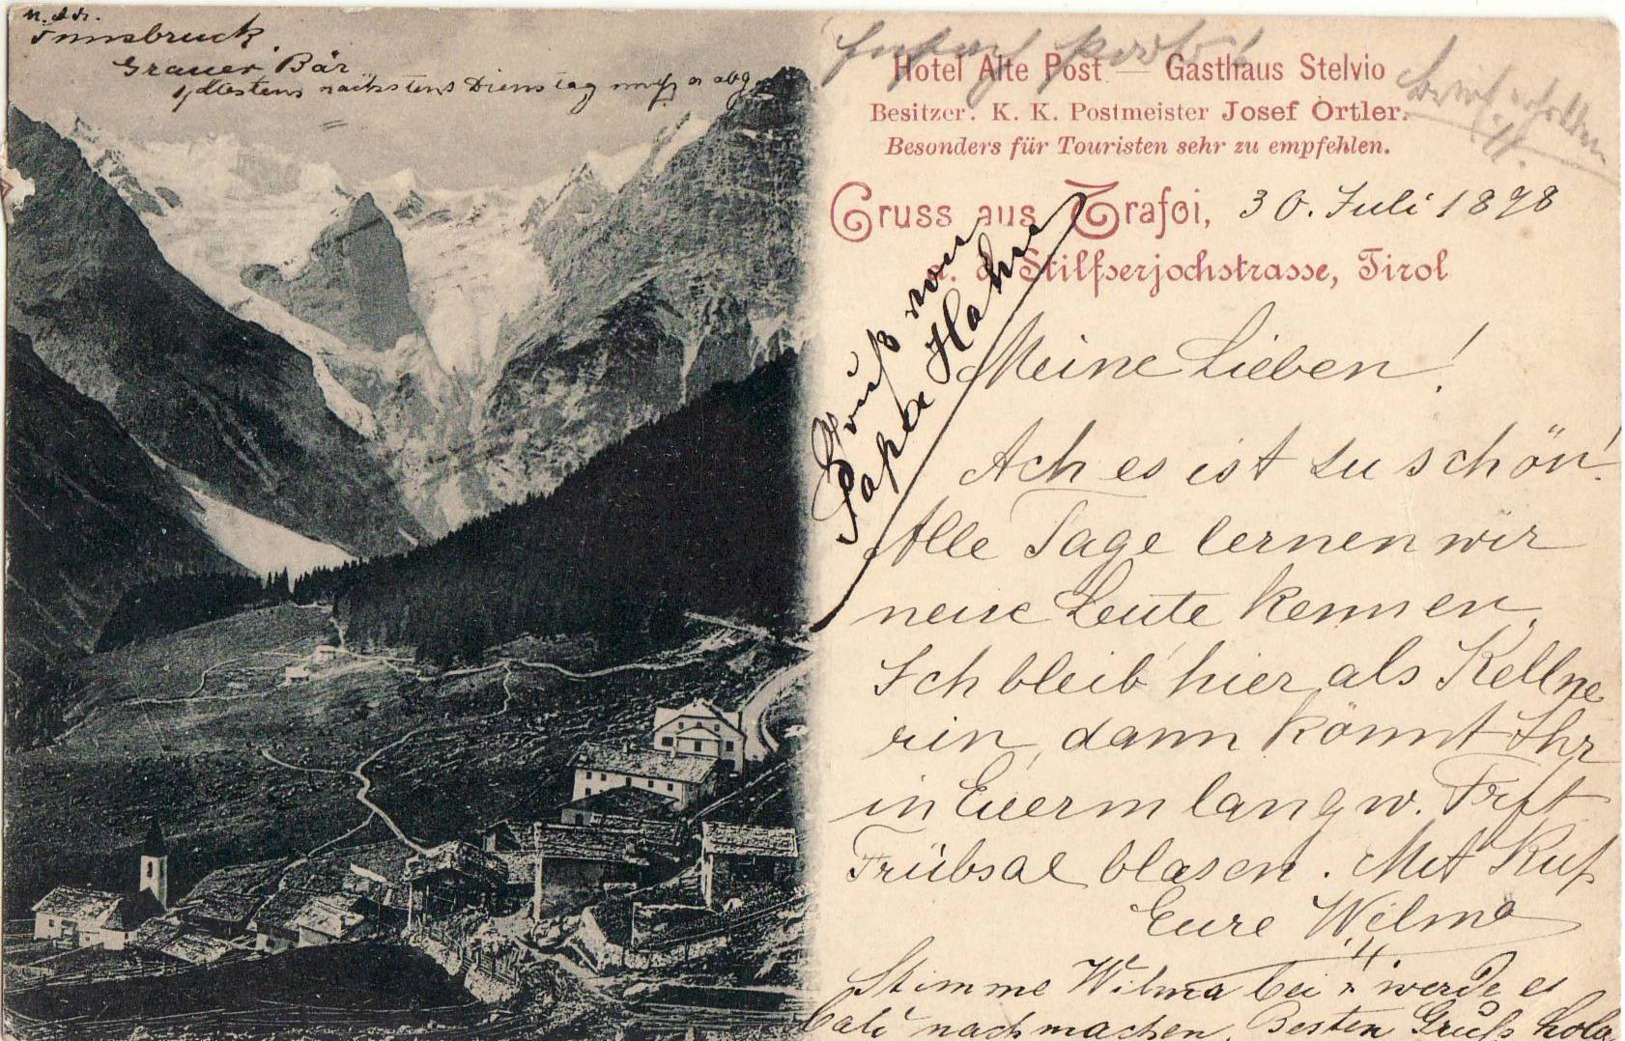 Innsbruck.
Grauer Bär
nächstens Dienstag
Hotel Alte Post — Gasthaus Stelvio
Besitzer: K. K. Postmeister Josef Ortler.
Besonders für Touristen sehr zu empfehlen.
Gruss aus Trafoi, 30. Juli 1898
a. d. Stilfserjochstrasse, Tirol
Gruß von
Papa Hahn
Meine Lieben!
Ach es ist zu schön!
Alle Tage lernen wir
neue Leute kennen.
Ich bleib' hier als Kellne
rin, dann könnt Ihr
in Euerm langw.
Trübsal blasen. Mit Kuß
Eure Wilma
Stimme Wilma bei u. werde es
bald nachmachen. Besten Gruß